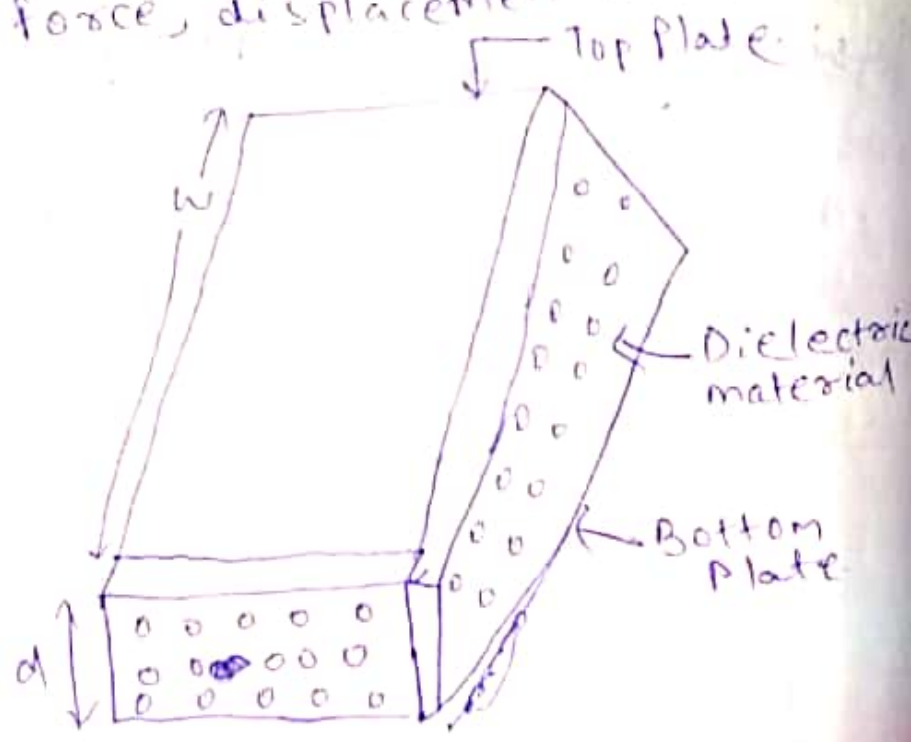 force, displaceme
Top Plate
W
Dielectric
material
Bottom
Plate
d